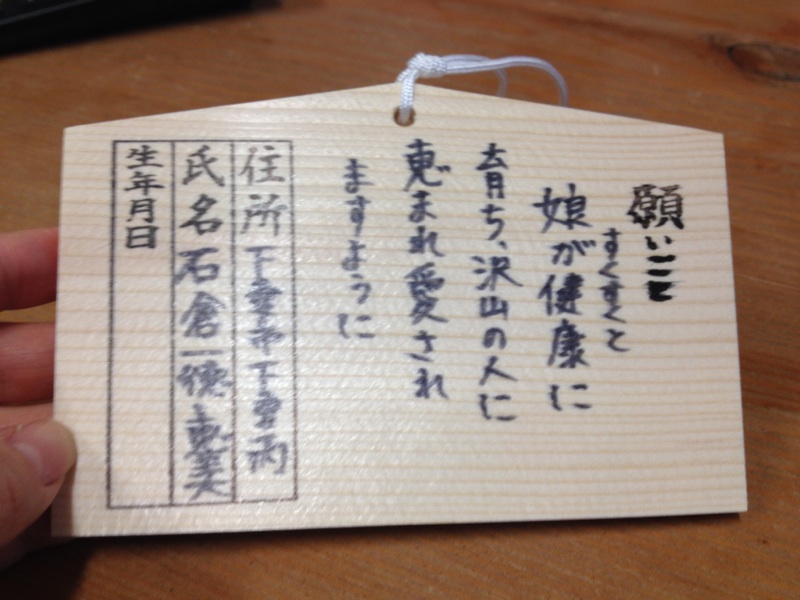 願いごと
すくすくと
娘が健康に
育ち、沢山の人に
恵まれ愛され
ますように
住所 下妻市下妻丙
氏名 石倉一徳恵美
生年月日